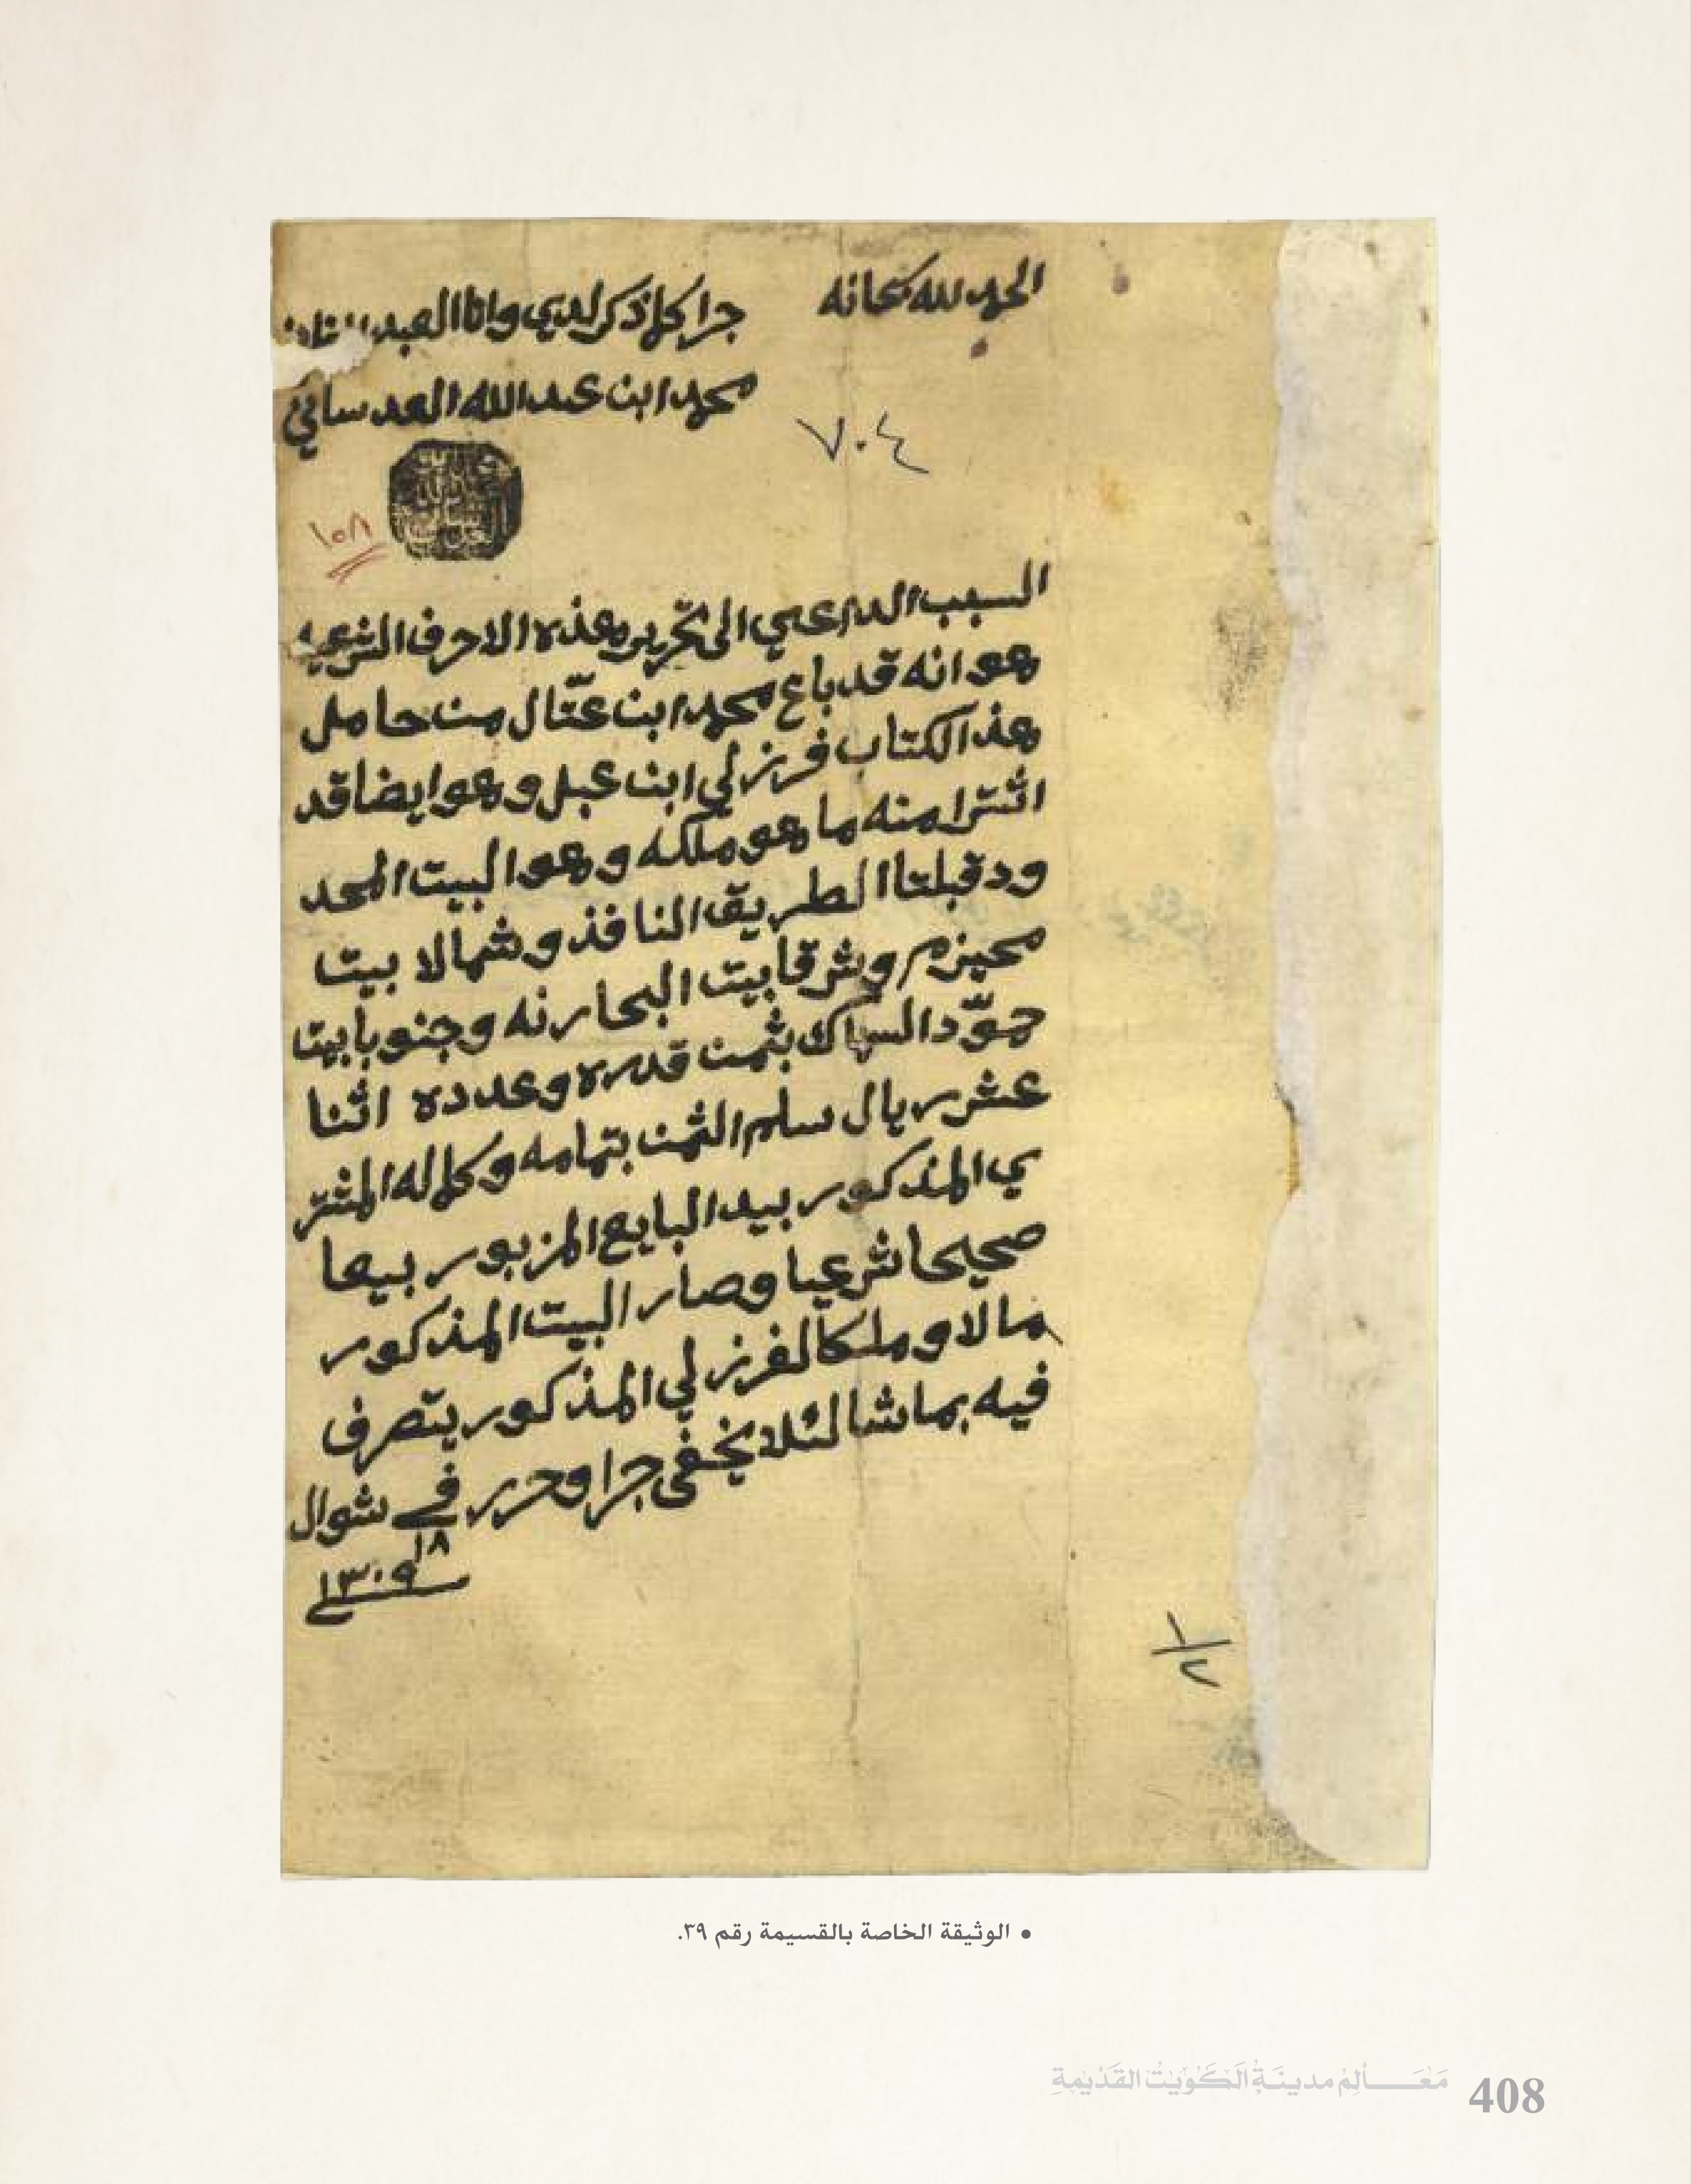 الحمد لله سبحانه
جرا كلما ذكر لدي وانا العبد
محمد ابن عبد الله العدساني
٧٠٤
١٥٨
السبب الداعي الى تحرير هذه الاحرف الشرعيه
هو انه قد باع محمد ابن عتّال من حامل
هذ الكتاب فرزلي ابن عبل وهو ايضا قد
اشترا منه ما هو ملكه وهو البيت المحد
ود قبلتا الطريق النافذ وشمالا بيت
محيزم وشرقا بيت البحارنه وجنوبا بيت
حوّد السماك بثمن قدره وعدده اثنا
عشر ريال سلم الثمن بتمامه وكماله المشتر
ي المذكور بيد البايع المزبور بيعا
صحيحا شرعيا وصار البيت المذكور
مالا وملكا لفرزلي المذكور يتصرف
فيه بما شا لئلا يخفى جرا وحرر في شوال
١٨
١٣٠٩
١/٢
• الوثيقة الخاصة بالقسيمة رقم ٣٩.
مَعَالِمُ مدينَةِ الكُوَيْت القَدْيمةِ 408